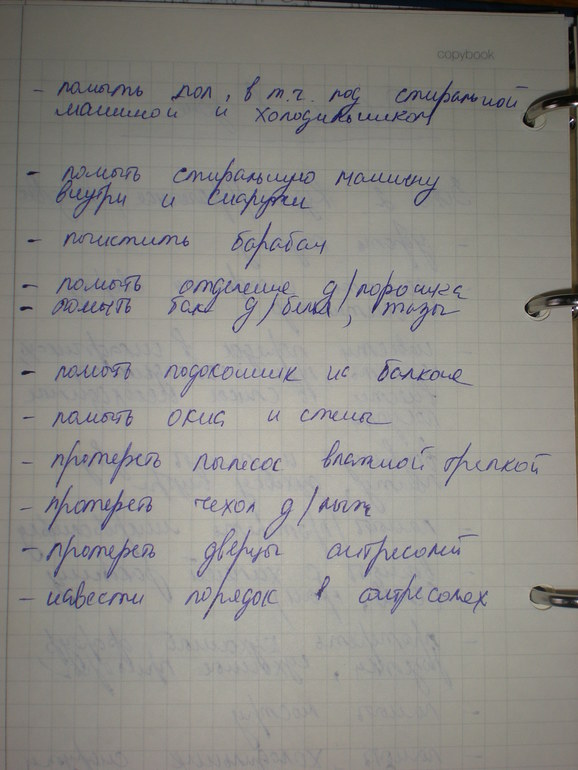 copybook
- помыть пол, в т.ч. под стиральной
машиной и холодильником
- помыть стиральную машину
внутри и снаружи
- почистить барабан
- помыть отделение д/порошка
- помыть бак д/белья, тазы
- помыть подоконник на балконе
- помыть окна и стены
- протереть пылесос влажной тряпкой
- протереть чехол д/лыж
- протереть дверцы антресолей
- навести порядок в антресолях